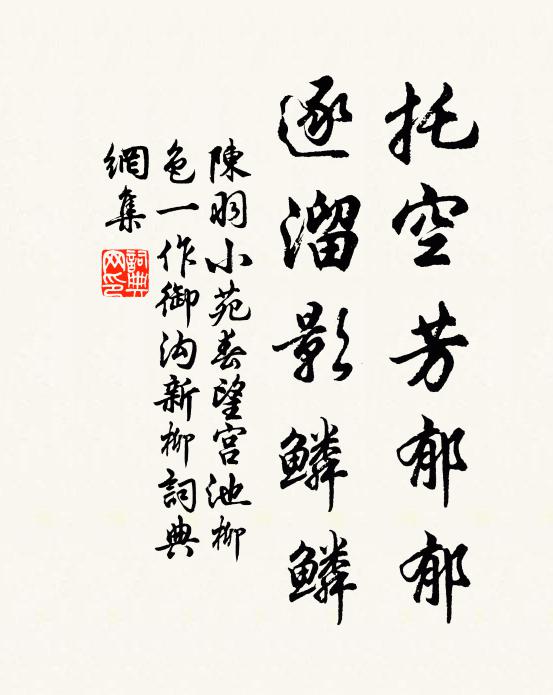 托空芳郁郁
逐溜影鱗鱗
陳羽小苑春望宮池柳
色一作御沟新柳詞典
網集
詞典
网印